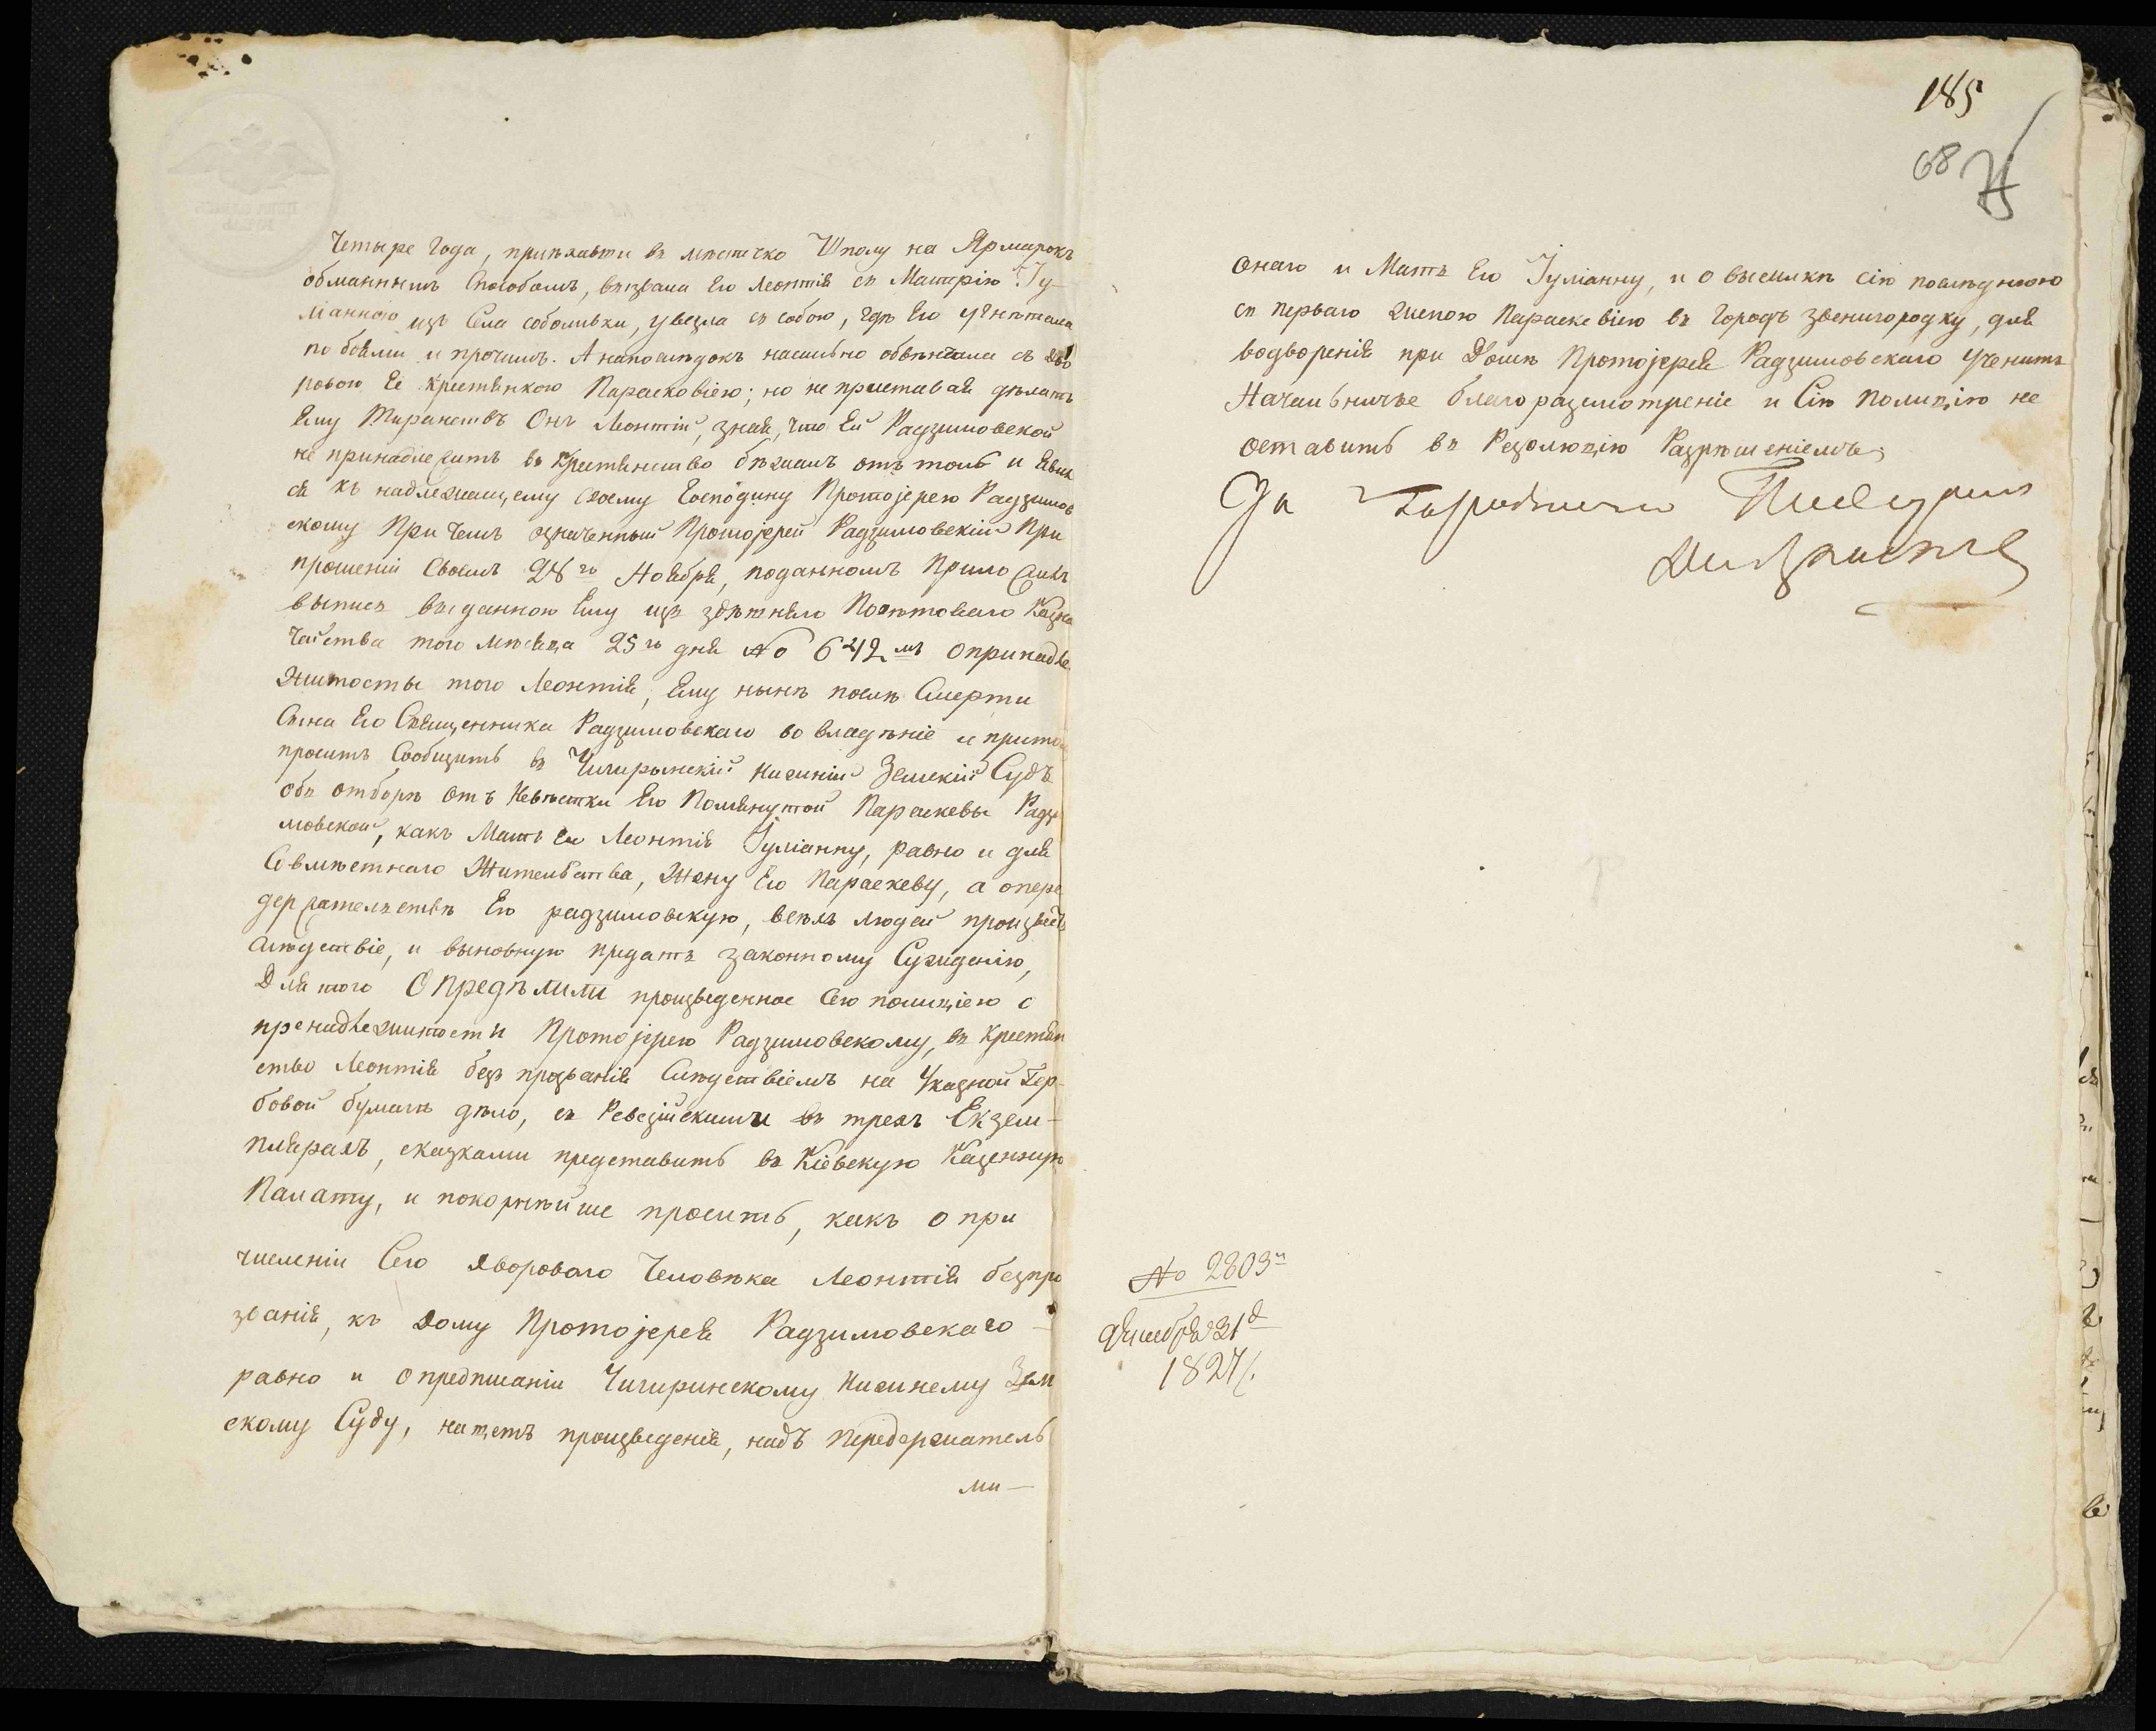 Четыре года, приѣхавши въ мѣстечко Шполу на Ярмарокъ
обманнымъ Способомъ, вызвала Его Леонтія съ Матерію Іу-
ліанною изъ Села соболивки, увезла съ собою, гдѣ Его угнѣтала
побоями и прочимъ. А напослѣдокъ насильно обвѣнчала съ дво
ровою Ее Крестянкою Парасковіею; но не приставая дѣлать
Ему Тиранствъ Онъ Леонтій, зная, что Ей Радзимовской
не принадлежитъ въ Крестянство бѣжалъ отъ толь и явил
ся къ надлежащему своему Господину Протоіерею Радзимов
скому При чемъ означенный Протоіерей Радзимовскій При
прошеніи Своемъ 28го Ноября, поданномъ Приложилъ
выпись выданною Ему изъ здѣшняго Повѣтоваго Казна
чейства того мѣсяца 25го дня No 642мъ опринадле
житосты того Леонтія, Ему нынѣ послѣ Смерти
Сына Его Священника Радзимовскаго во владѣніе и притомъ
проситъ Сообщить въ Чигирынскій Нижній Земскій Судъ
объ отборѣ отъ Невѣстки Его Помянутой Параскевы Радзи
мовской, какъ Мать его Леонтія Іуліанну, равно и для
Совмѣстнаго Жительства, Жену Его Параскеву, а опере
держательствѣ Ею радзимовскую, всѣхъ людей произвесть
слѣдствіе, и выновную предать законному Сужденію,
Для того Опредѣлили произведенное Сею полиціею о
пренадлежитости Протоіерею Радзимовскому, въ Крестян
ство Леонтія безъ прозванія Слѣдствіемъ на Указной Гер-
бовой бумагѣ дѣло, съ Ревезійскими въ трехъ Екзем-
плярахъ, сказками представить въ Кіевскую Казенную
Палату, и покорнѣйше просить, какъ о при
численіи Сего дворового Человѣка Леонтія безпро
званія, къ дому Протоіерея Радзимовскаго -
равно и опредписаніи Чигиринскому Нижнему Зем
скому Суду, нащетъ произведенія, надъ передержатель
ми-
185
68
онаго и Мать Его Іуліанну, и о высилкѣ сію послѣднюю
съ перваго женою Параскевіею въ Городъ Звенигородку, для
водворенія при Домѣ Протоіерея Радзимовскаго учинить
Начальничье благоразсмотреніе и Сію полицію не
оставить въ Резолюцію Разрѣшеніемъ;
За Городничего
No 2803й
декабря 31д
1827/.